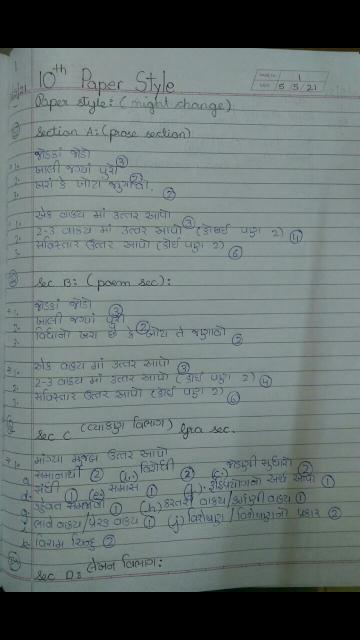 10th Paper Style
1
5/5/21
Paper style: (might change)
Section A: (prose section)
જોડકાં જોડો ③
ખાલી જગ્યા પુરો ②
ખરાં કે ખોટાં જણાવો. ②
એક વાક્ય માં ઉત્તર આપો ③
2-3 વાક્ય માં ઉત્તર આપો (કોઈ પણ 2) ④
સવિસ્તાર ઉત્તર આપો (કોઈ પણ 2) ⑥
Sec B: (poem sec):
જોડકાં જોડો ③
ખાલી જગ્યાં પુરો ②
વિધાનો ખરા છે કે ખોટા તે જણાવો ②
એક વાક્ય માં ઉત્તર આપો ③
2-3 વાક્ય માં ઉત્તર આપો (કોઈ પણ 2) ④
સવિસ્તાર ઉત્તર આપો (કોઈ પણ 2) ⑥
Sec C (વ્યાકરણ વિભાગ) Gra sec.
માંગ્યા મુજબ ઉત્તર આપો
a. સમાનાર્થી ② (b.) વિરોધી ② (c.) જોડણી સુધારો ②
d. સંધી ① (e) સમાસ ① (f.) રૂઢિપ્રયોગનો અર્થ આપો ①
① (h.) કરતરી વાક્ય/કર્મણી વાક્ય ①
ભાવે વાક્ય/પ્રેરક વાક્ય ① (j) વિશેષણ/વિશેષણનો પ્રકાર ②
k. વિરામ ચિન્હ ②
Sec D: લેખન વિભાગ: